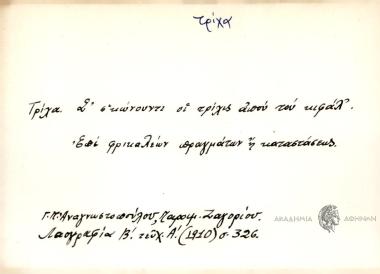 τρίχα
Τρίχα. Σ' σ'κώνουντι οἱ τρίχις ἀποὺ τοὺ κιφάλ'.
Ἐπὶ φρικαλέων πραγμάτων ἢ καταστάσεως.
Γ.Π. Ἀναγνωστοπούλου, Παροιμ. Ζαγορίου.
Λαογραφία Β'. τεῦχ. Α'. (1910) σ. 326.
ΑΚΑΔΗΜΙΑ ΑΘΗΝΩΝ